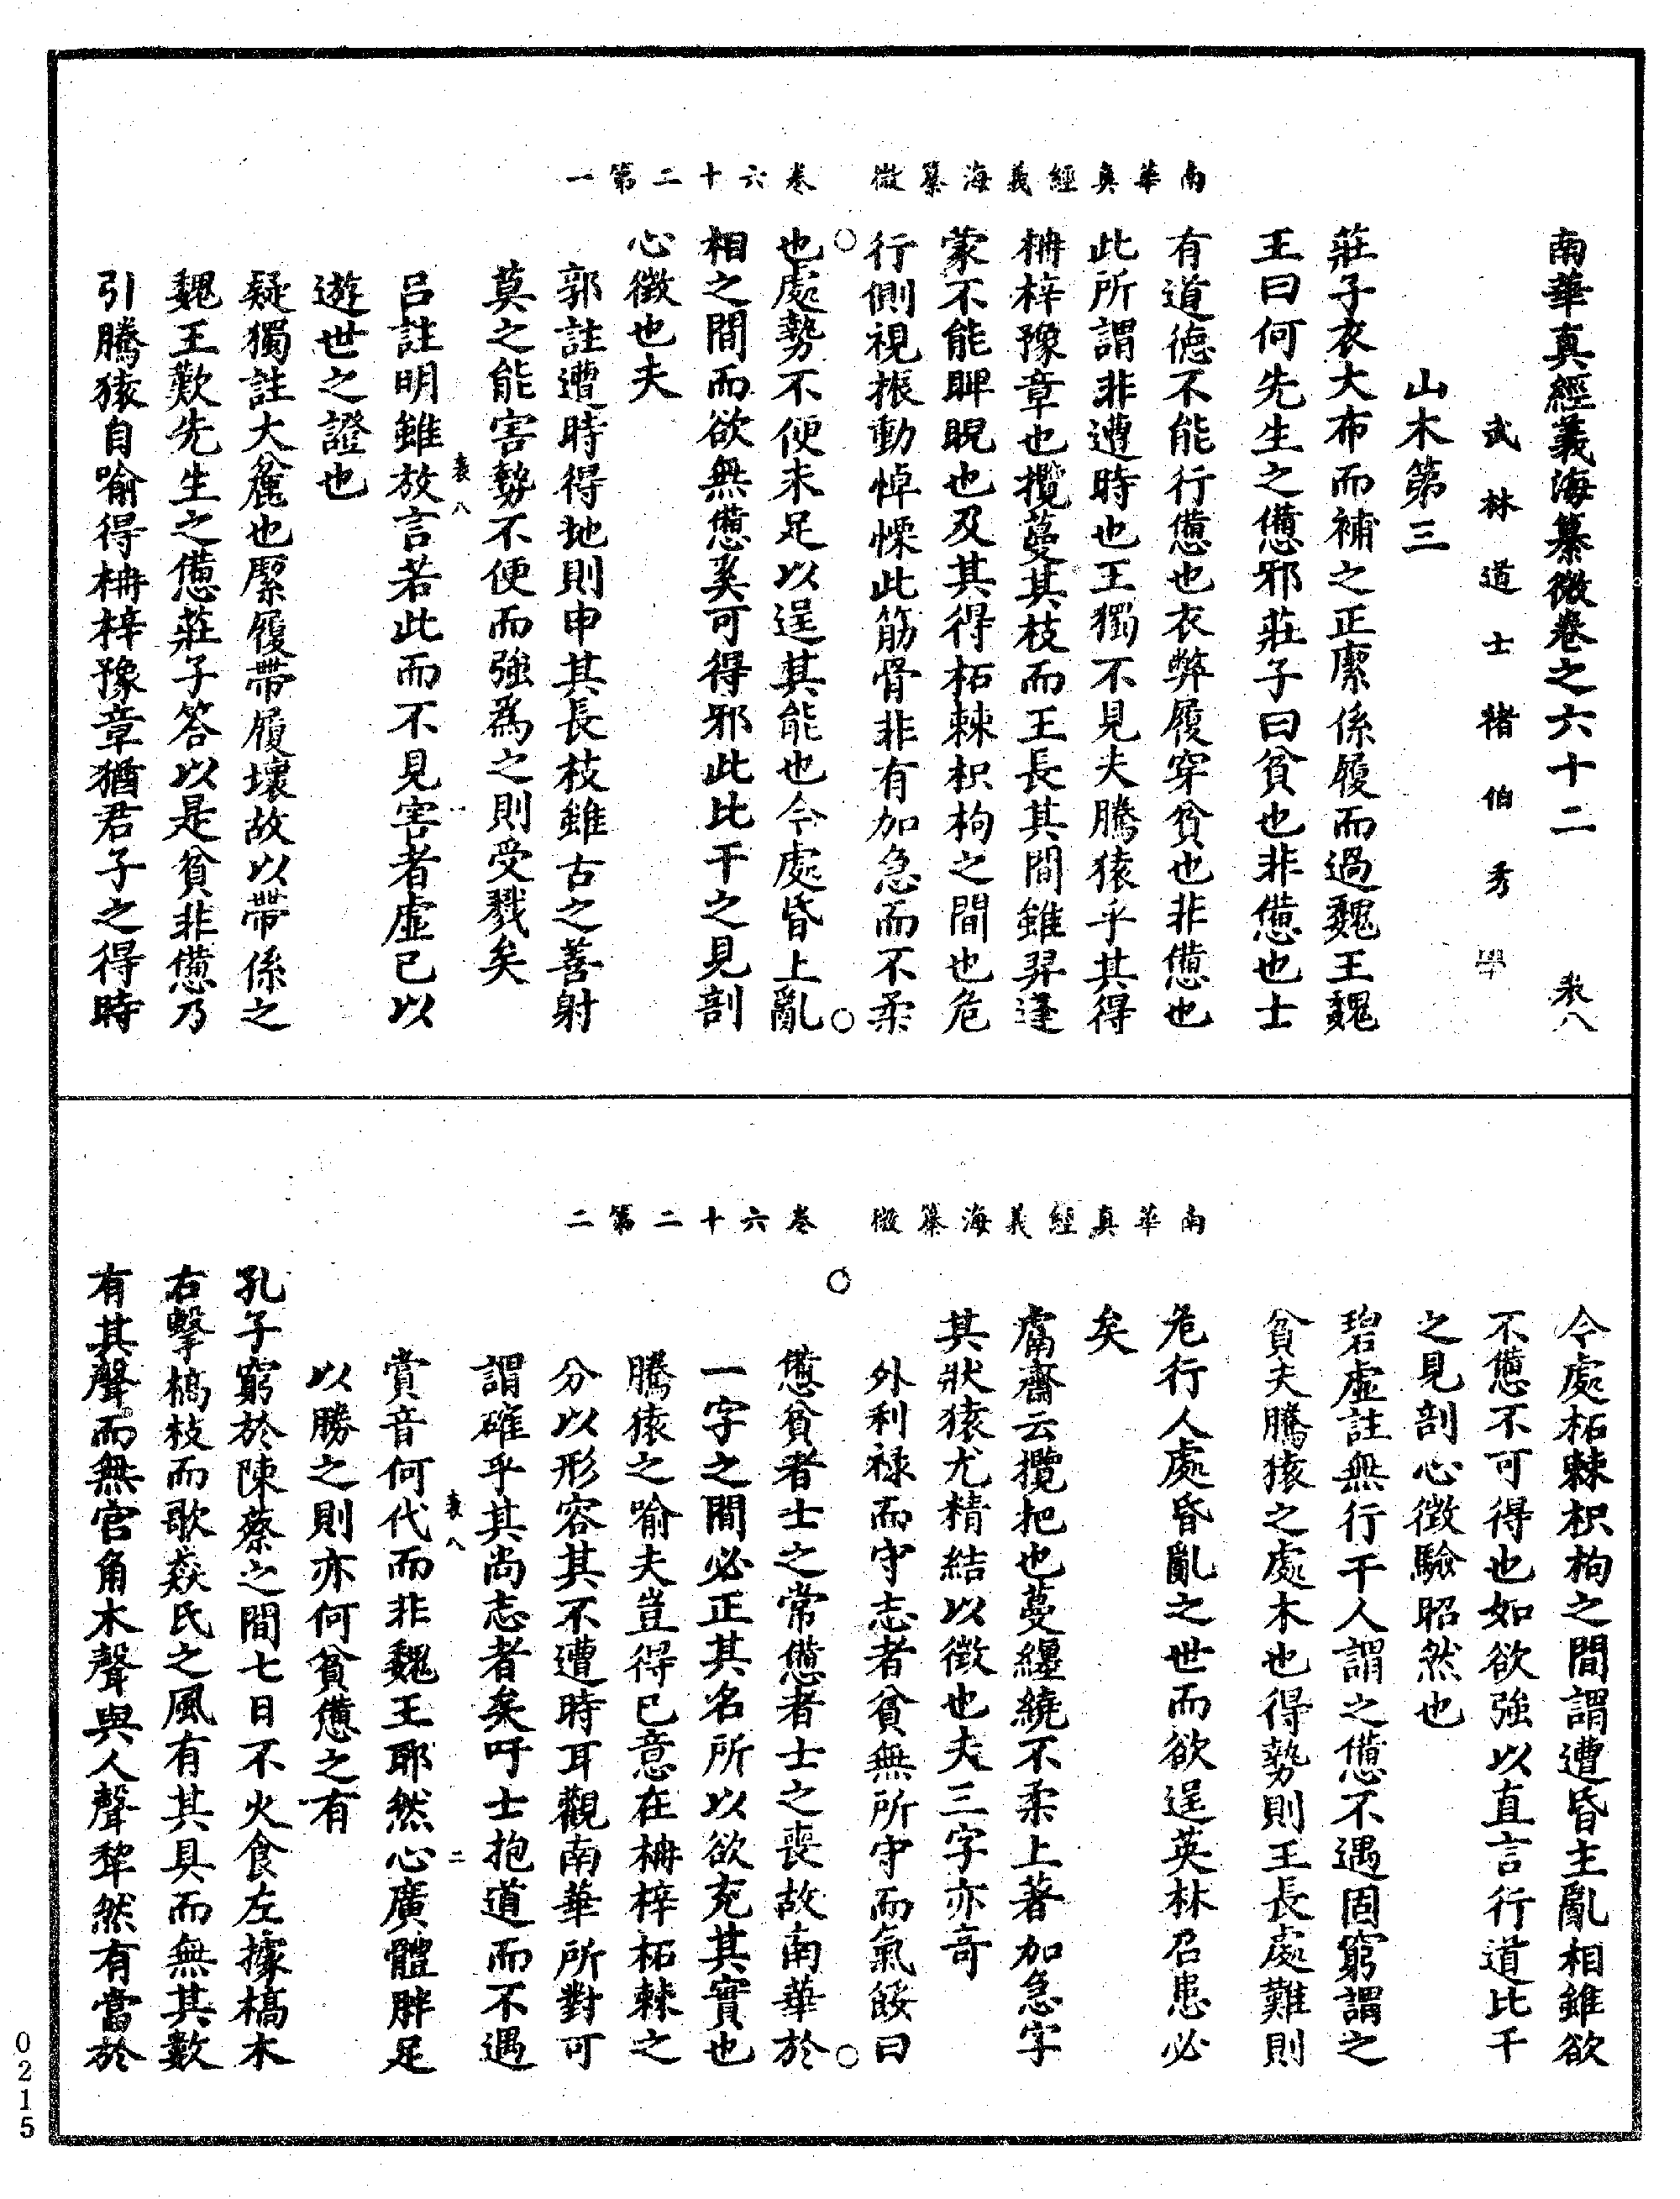 南華真經義海纂微卷之六十二　表八
武林道士褚伯秀學
山木第三
莊子衣大布而補之正緳係履而過魏王魏
王曰何先生之憊邪莊子曰貧也非憊也士
有道德不能行憊也衣弊履穿貧也非憊也
此所謂非遭時也王獨不見夫騰猿乎其得
柟梓豫章也攬蔓其枝而王長其間雖羿逢
蒙不能睥睨也及其得柘棘枳枸之間也危
行側視振動悼慄此筋骨非有加急而不柔
南華真經義海纂微　卷六十二第一
也處勢不便未足以逞其能也今處昏上亂
相之間而欲無憊奚可得邪此比干之見剖
心徵也夫
郭註遭時得地則申其長枝雖古之善射
莫之能害勢不便而強為之則受戮矣
表八　一
呂註明雖放言若此而不見害者虛已以
遊世之證也
疑獨註大麄也緊履帶履壞故以帶係之
魏王歎先生之憊莊子答以是貧非憊乃
引騰猿自喻得柟梓豫章猶君子之得時
今處柘棘枳枸之間謂遭昏主亂相雖欲
不憊不可得也如欲強以直言行道比干
之見剖心徵驗昭然也
碧虛註無行干人謂之憊不遇固窮謂之
貧夫騰猿之處木也得勢則王長處難則
危行人處昏亂之世而欲逞英林召患必
矣
鬳齋云攬把也蔓纏繞不柔上著加急字
其狀猿尤精結以徵也夫三字亦奇
外利祿而守志者貧無所守而氣餒曰
南華真經義海纂微　卷六十二第二
憊貧者士之常憊者士之喪故南華於
一字之間必正其名所以欲充其實也
騰猿之喻夫豈得已意在柟梓柘棘之
分以形容其不遭時耳觀南華所對可
謂確乎其尚志者矣吁士抱道而不遇
表八　二
賞音何代而非魏王耶然心廣體胖足
以勝之則亦何貧憊之有
孔子窮於陳蔡之間七日不火食左據槁木
右擊槁枝而歌焱氏之風有其具而無其數
有其聲而無宮角木聲與人聲犂然有當於
0215